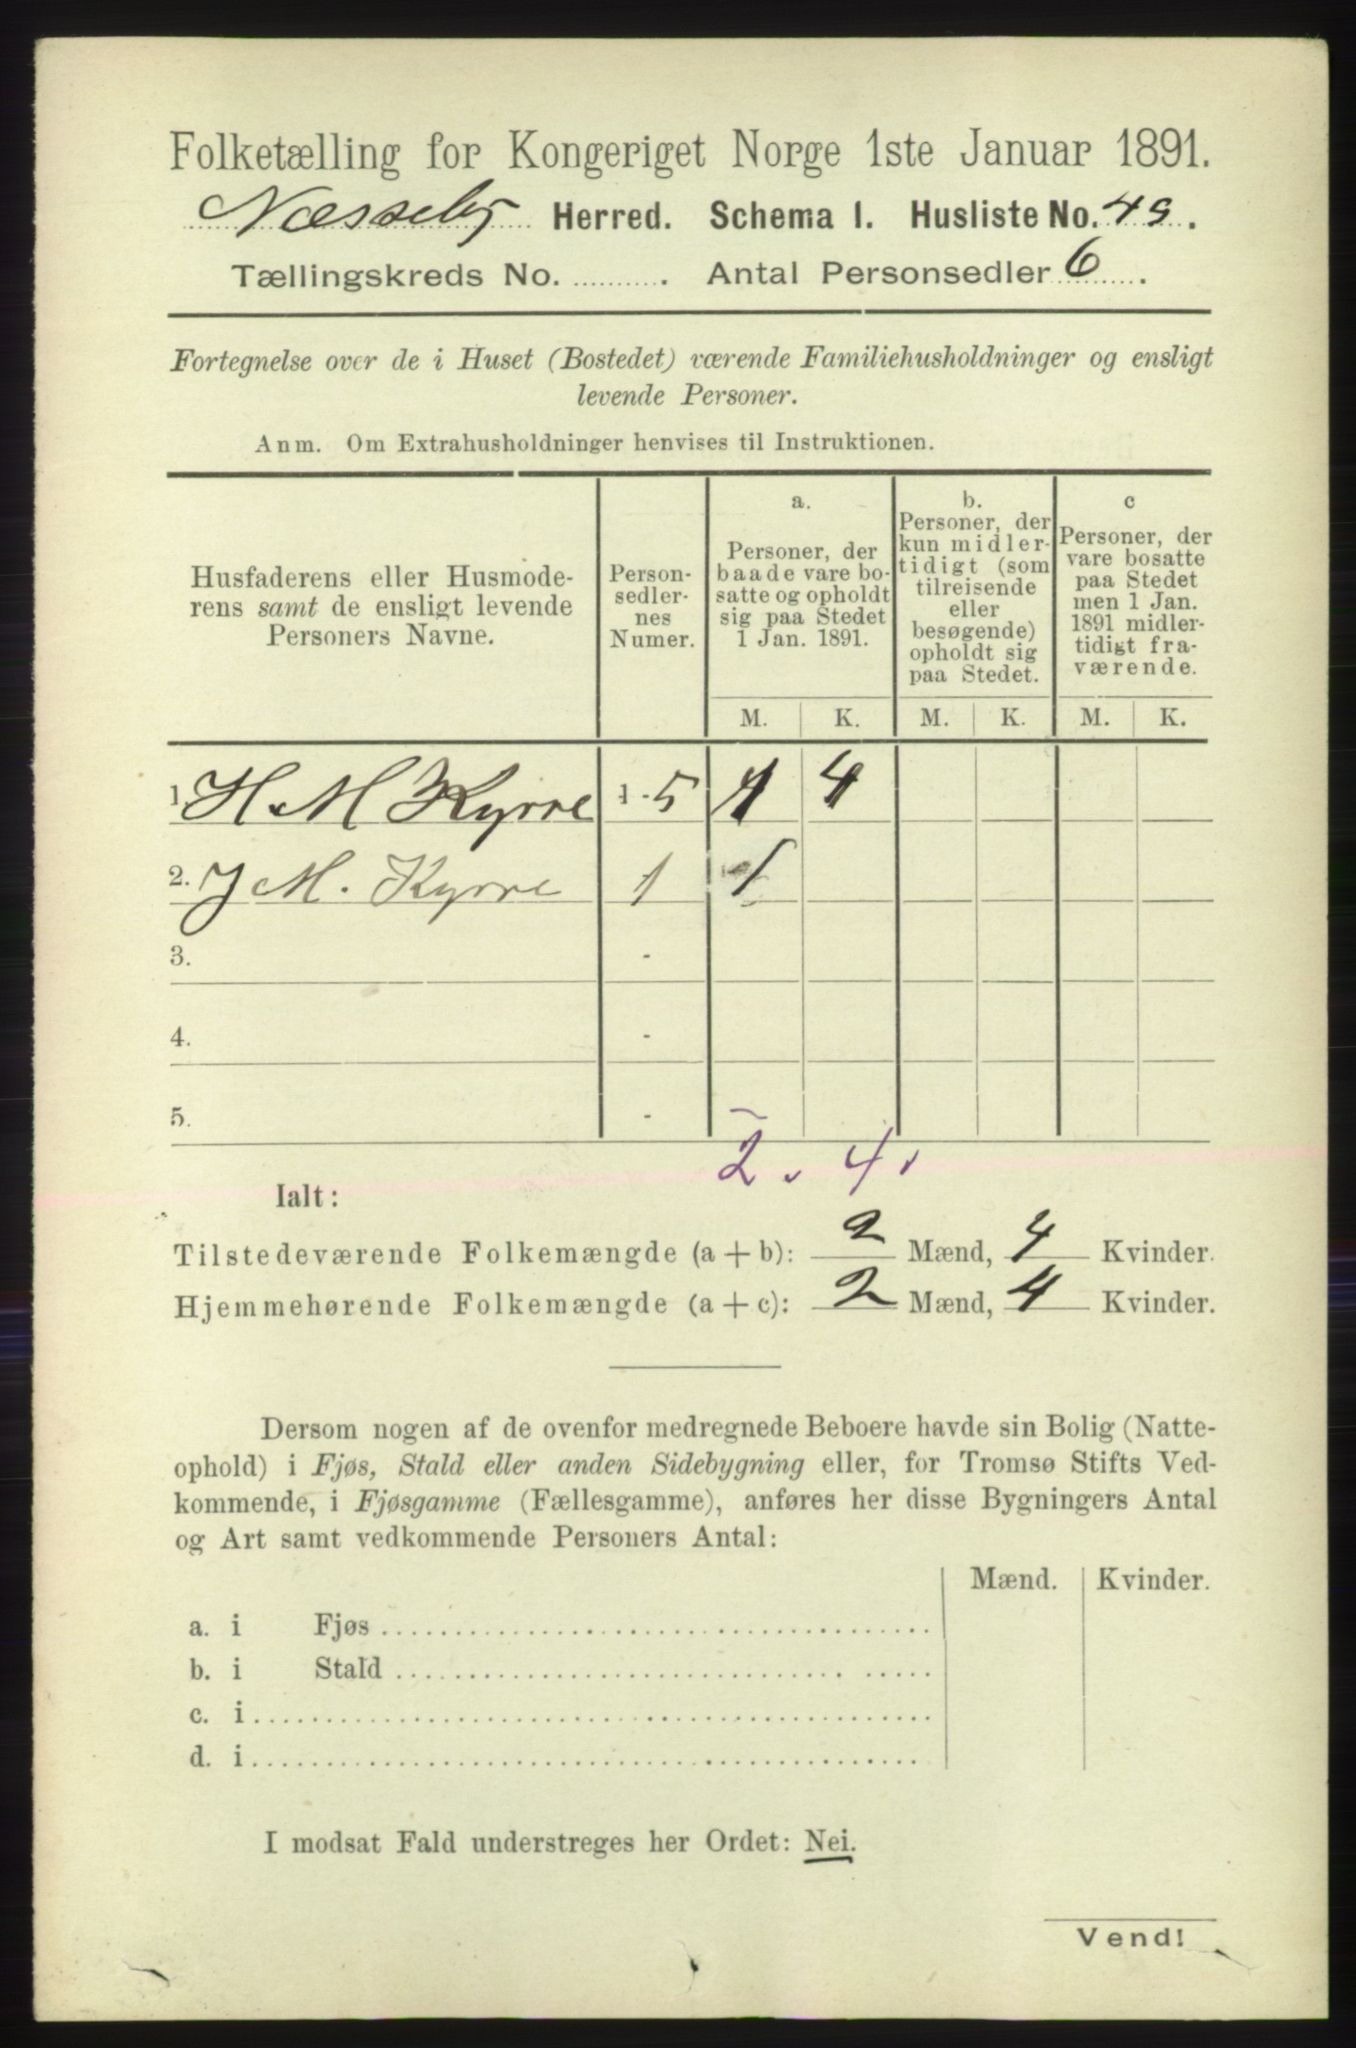 Folketælling for Kongeriget Norge 1ste Januar 1891.
Næsseby Herred. Schema 1. Husliste No. 49.
Tællingskreds No. .......... . Antal Personsedler 6.
Fortegnelse over de i Huset (Bostedet) værende Familiehusholdninger og ensligt
levende Personer.
Anm. Om Extrahusholdninger henvises til Instruktionen.
Husfaderens eller Husmode-
rens samt de ensligt levende
Personers Navne.
Person-
sedler-
nes
Numer.
a.
Personer, der
baade vare bo-
satte og opholdt
sig paa Stedet
1 Jan. 1891.
b.
Personer, der
kun midler-
tidigt (som
tilreisende
eller
besøgende)
opholdt sig
paa Stedet.
c
Personer, der
vare bosatte
paa Stedet
men 1 Jan.
1891 midler-
tidigt fra-
værende.
M. K. M. K. M. K.
1. H. M Kyrre 1 - 5 1 4
2. J M. Kyrre 1 1
3. -
4. -
5. -
2. 4.
Ialt:
Tilstedeværende Folkemængde (a + b): 2 Mænd, 4 Kvinder.
Hjemmehørende Folkemængde (a + c): 2 Mænd, 4 Kvinder.
Dersom nogen af de ovenfor medregnede Beboere havde sin Bolig (Natte-
ophold) i Fjøs, Stald eller anden Sidebygning eller, for Tromsø Stifts Ved-
kommende, i Fjøsgamme (Fællesgamme), anføres her disse Bygningers Antal
og Art samt vedkommende Personers Antal:
Mænd. Kvinder.
a. i Fjøs
b. i Stald
c. i
d. i
I modsat Fald understreges her Ordet: Nei.
Vend!